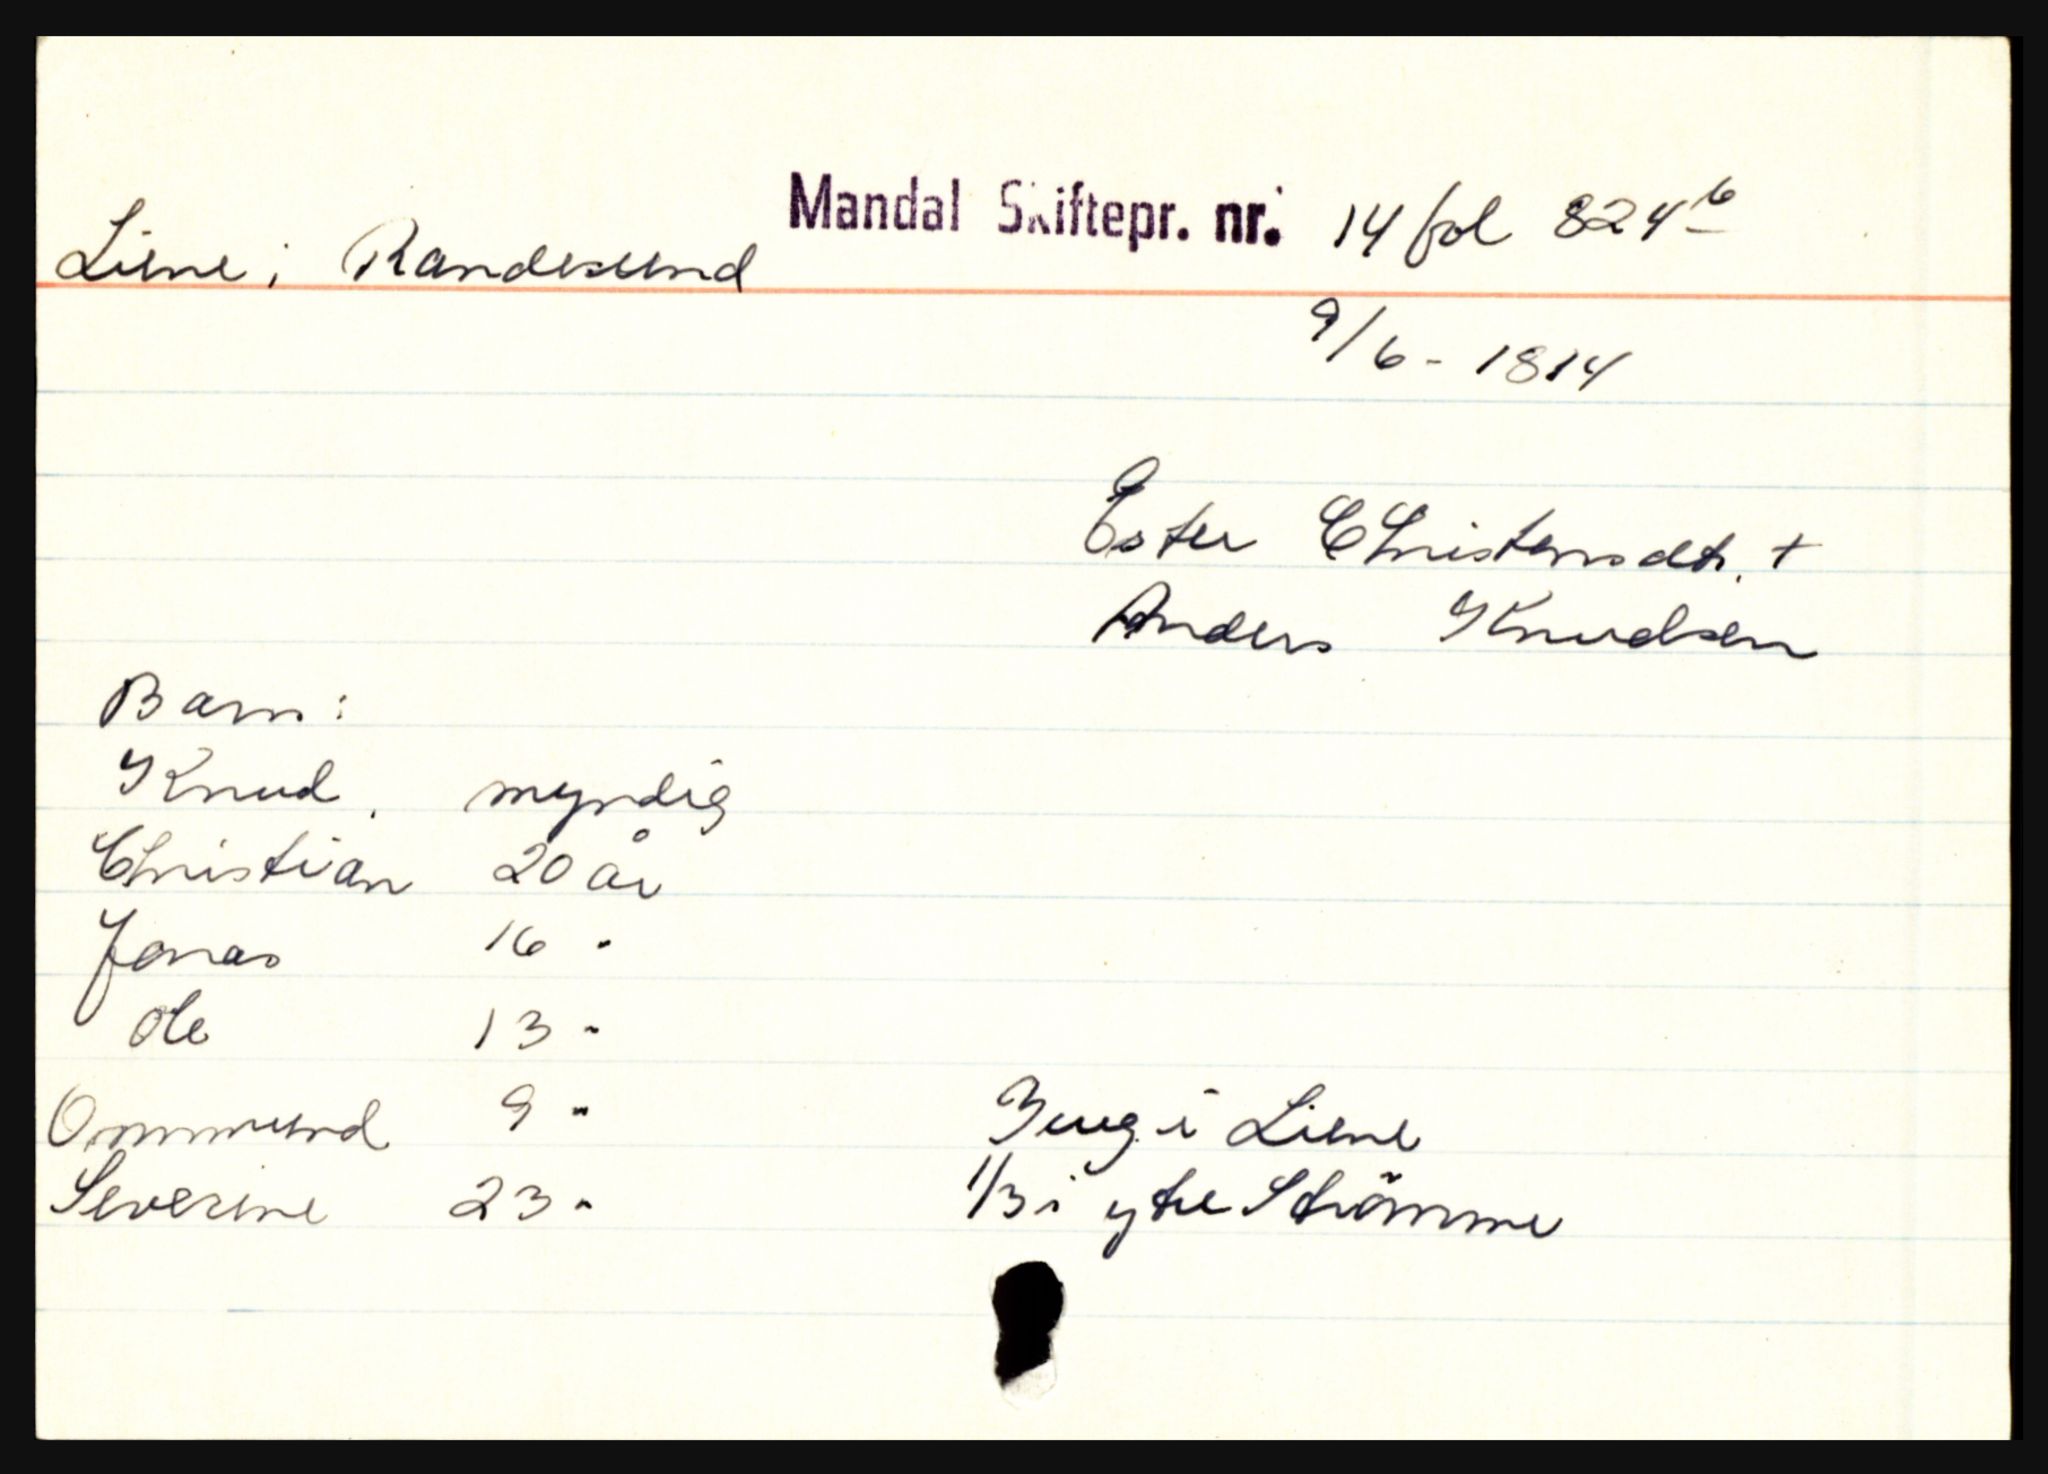 Mandal Skiftepr. nr. 14 fol 824 b
Liene i Randesund
9/6 - 1814
Ester Christensdtr. +
Anders Knudsen
Barn:
Knud, myndig
Christian 20 år
Jonas 16 "
Ole 13 "
Ommund 9 "
Severine 23 "
i Liene
1/3 i ytre Strömme